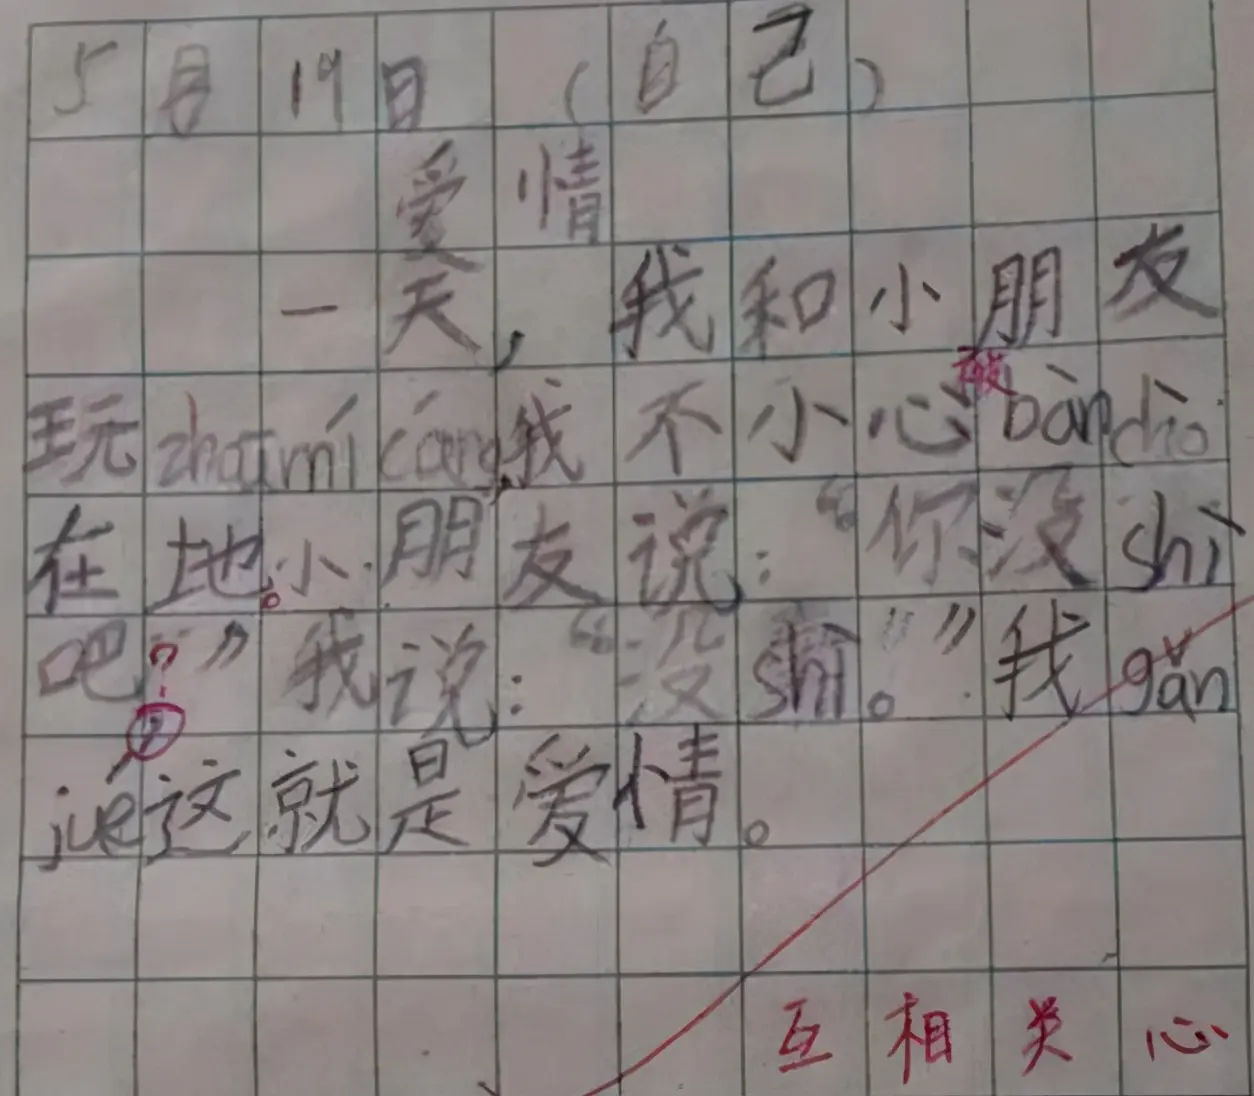 5月19日（自己）
爱情
一天，我和小朋友
玩zhuōmícáng，我不小心被bàndǎo
在地。小朋友说：“你没shì
吧？”我说：“没shì。”我gǎn
jué这就是爱情。
互相关心